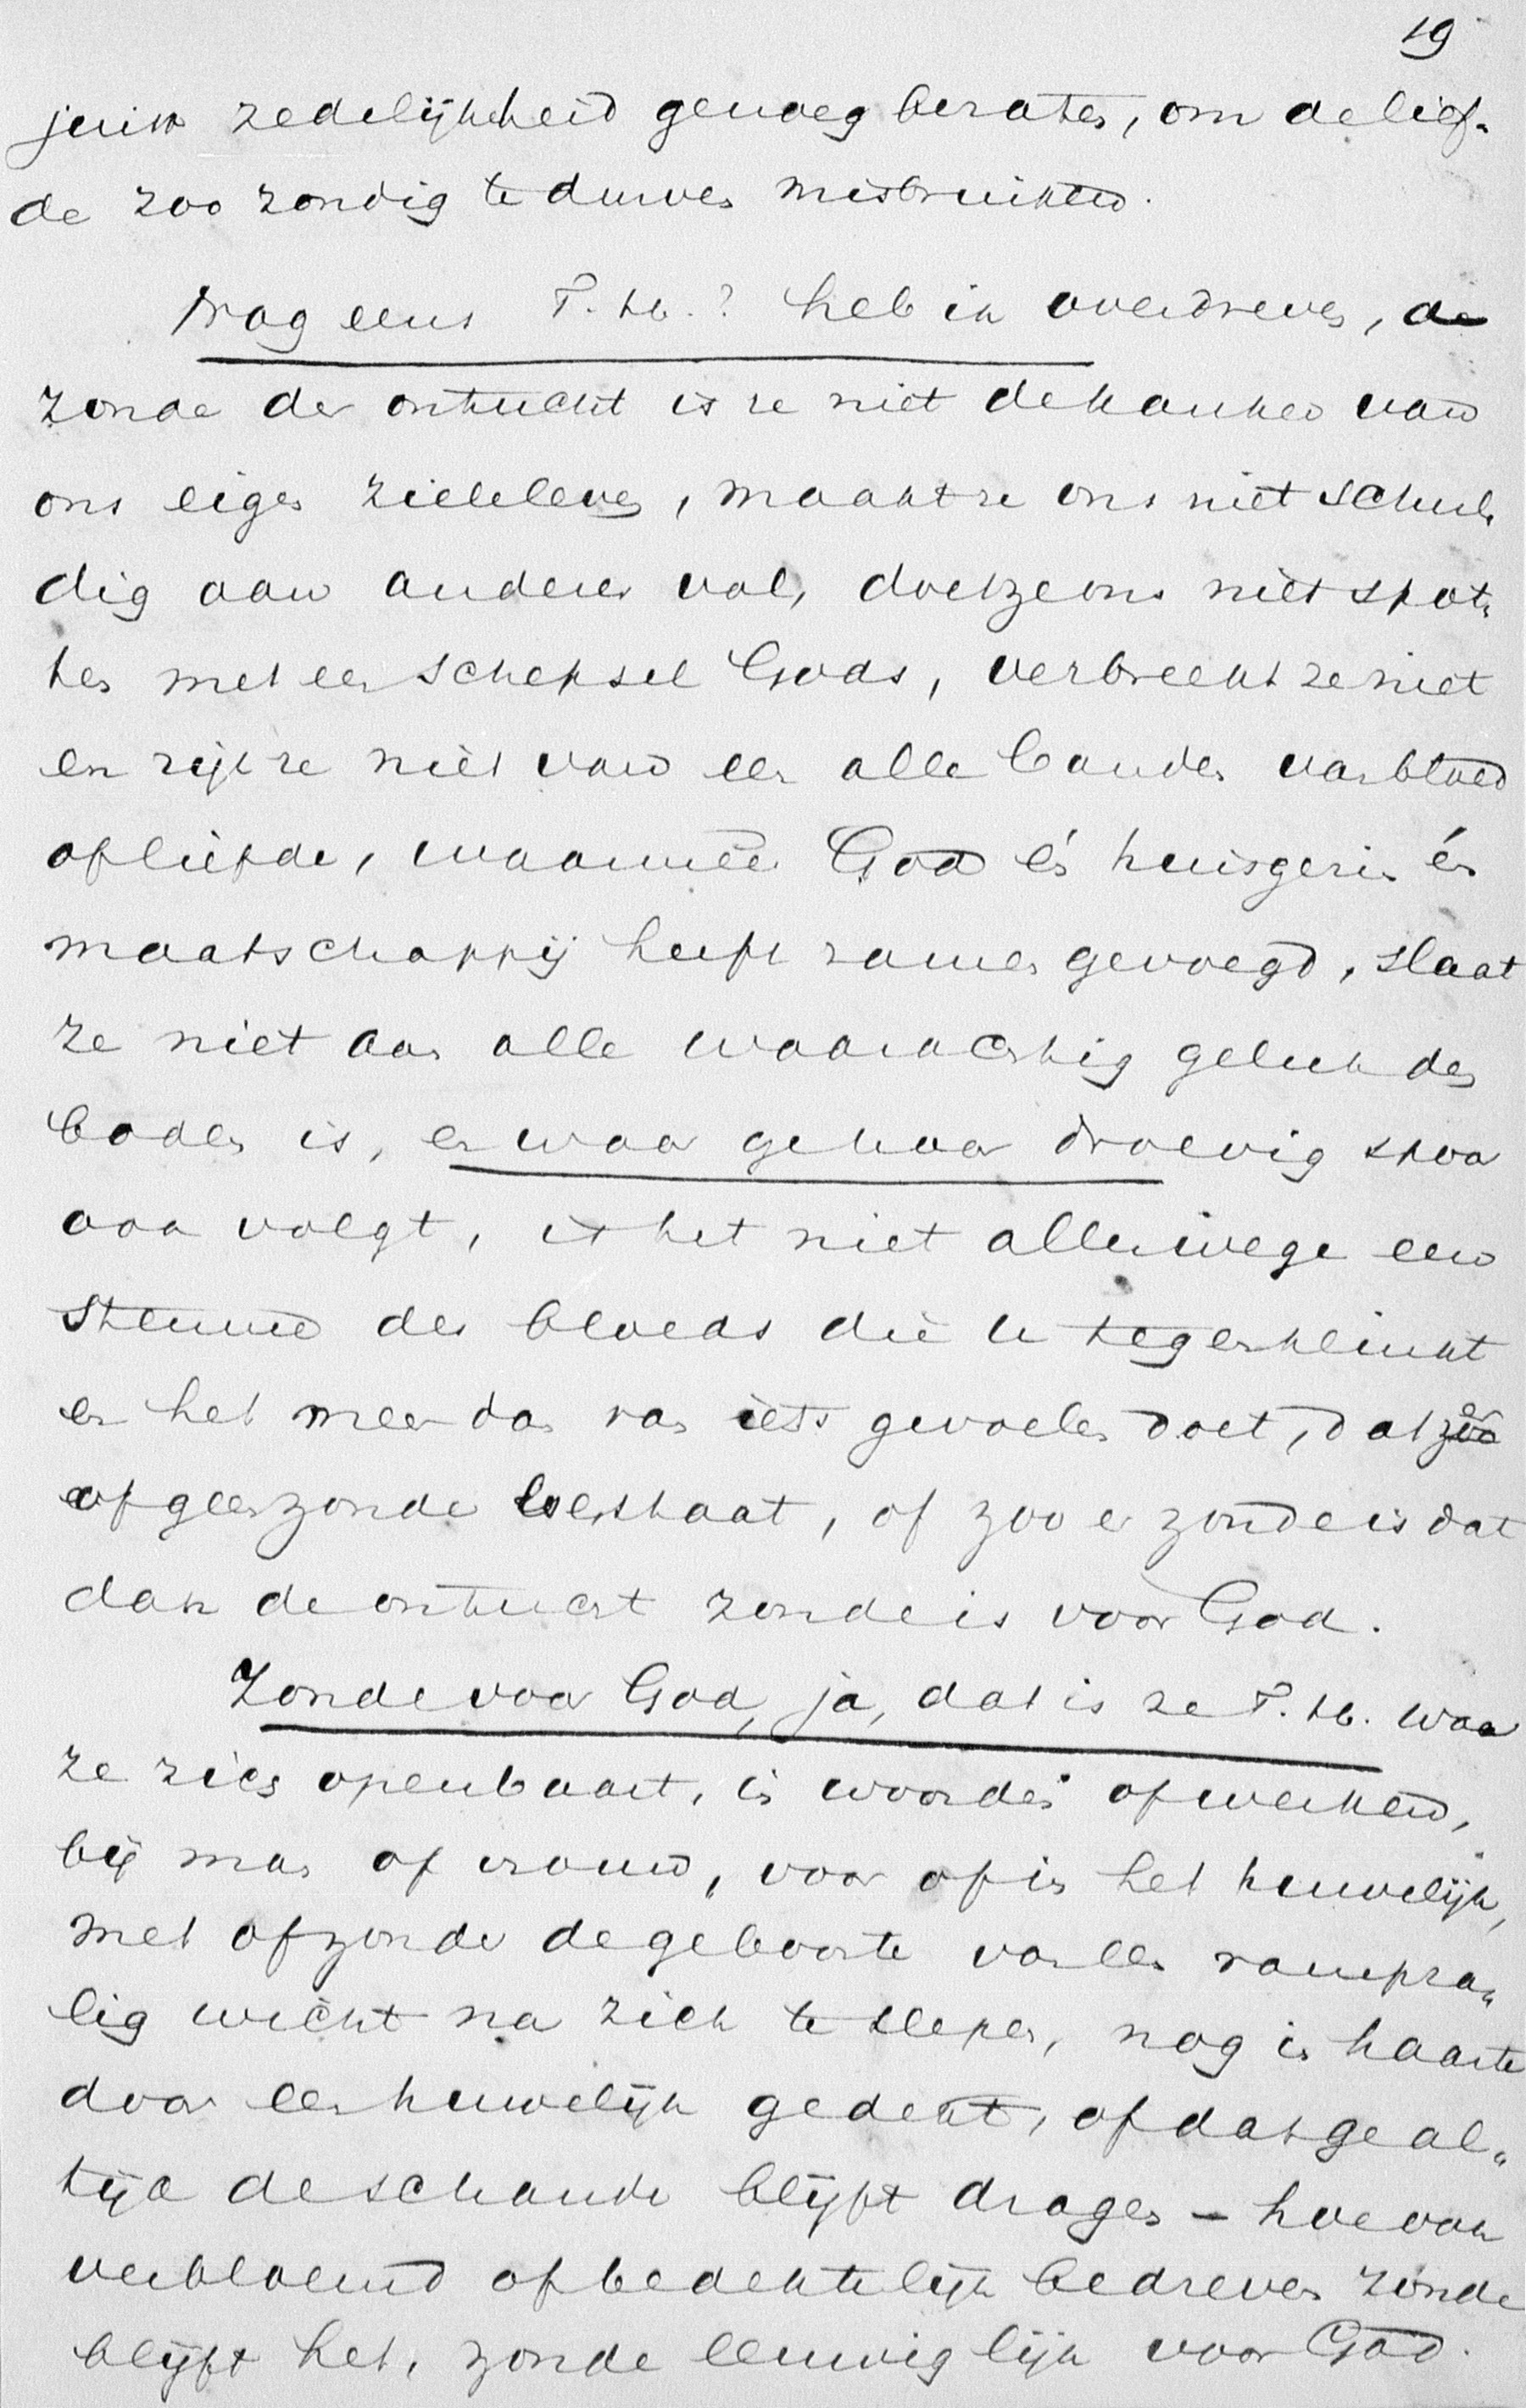 19
juist zedelijkheid genoeg bezaten, om de lief-
de zoo zondig te durven misbruiken.
Nog eens T. H.? heb ik overdreven, de
zonde der ontucht is ze niet de kanker van
ons eigen zieleleven, maakt ze ons niet schul-
dig aan anderer val, doet ze ons niet spot-
ten met een schepsel Gods, verbreekt ze niet
en rijt ze niet van een alle banden van bloed
of liefde, waarmeê God én huisgezin én
maatschappij heeft zamengevoegd, slaat
ze niet aan alle waarachtig geluk den
bodem in, en waar ge haar droevig spoor
ook volgt, is het niet allerwege een
stemme des bloeds die u tegenklinkt
en het meer dan ras iets gevoelen doet, dat zoo er
of geen zonde bestaat, of zoo er zonde is dat
dan de ontucht zonde is voor God.
Zonde voor God, ja, dat is ze T. H. waar
ze zich openbaart, in woorden of werken,
bij man of vrouw, voor of in het huwelijk,
met of zonder de geboorte van een rampza-
lig wicht na zich te slepen, nog in haast
door een huwelijk gedekt, of dat ge al-
tijd de schande blijft dragen – hoe ook
verbloemd of bedektelijk bedreven zonde
blijft het, zonde eeuwiglijk voor God.